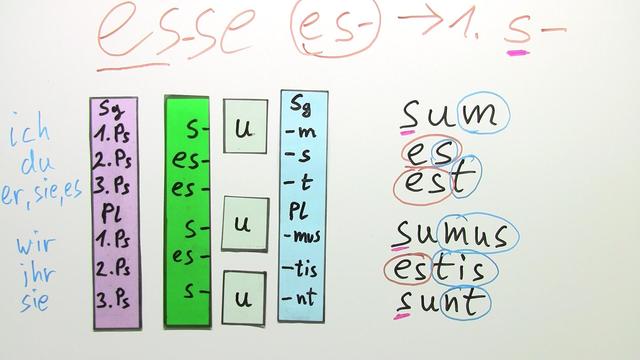 esse es- → 1. s-
Sg Sg
ich 1.Ps s- u -m sum
du 2.Ps es- -s es
er, sie, es 3.Ps es- -t est
Pl Pl
wir 1.Ps s- u -mus sumus
ihr 2.Ps es- -tis estis
sie 3.Ps s- u -nt sunt